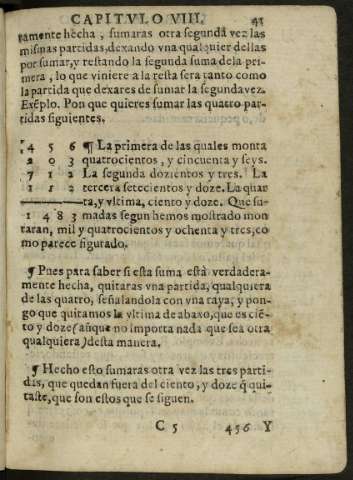 CAPITVLO VIII. 41
ramente hecha, sumaras otra segunda vez las
mismas partidas, dexando vna qualquier dellas
por sumar, y restando la segunda suma de la pri-
mera, lo que viniere a la resta sera tanto como
la partida que dexares de sumar la segunda vez.
Exẽplo. Pon que quieres sumar las quatro par-
tidas siguientes.
4 5 6 ¶ La primera de las quales monta
2 0 3 quatrocientos, y cincuenta y seys.
7 1 2 La segunda dozientos y tres. La
1 1 2 tercera setecientos y doze. La quar
ta, y vltima, ciento y doze. Que su-
1 4 8 3 madas segun hemos mostrado mon
taran, mil y quatrocientos y ochenta y tres, co
mo parece figurado.
¶ Pues para saber si esta suma està verdadera-
mente hecha, quitaras vna partida, qualquiera
de las quatro, señalandola con vna raya, y pon-
go que quitamos la vltima de abaxo, que es ciẽ-
to y doze (aũque no importa nada que sea otra
qualquiera) desta manera.
¶ Hecho esto sumaras otra vez las tres parti-
das, que quedan fuera del ciento, y doze q̃ qui-
taste, que son estos que se siguen.
C 5 456 Y